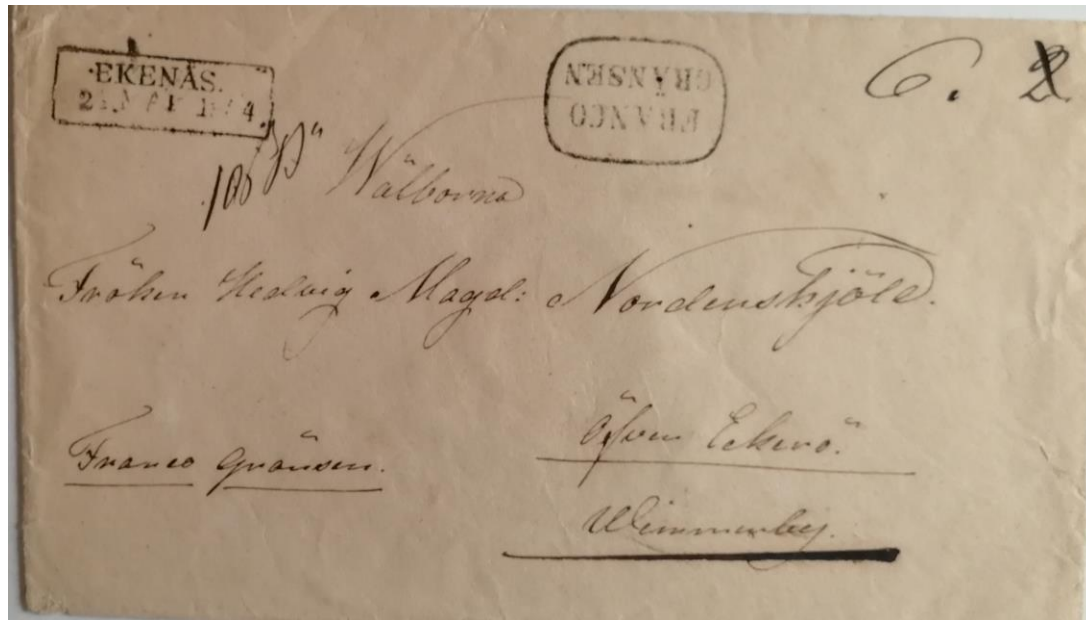 EKENÄS.
FRANCO
GRÄNSEN
6. 2
Wälborna
Fröken Hedvig Magd: Nordenskjöld.
Franco Gränsen.
Öfver Eckerö.
Wimmerby.